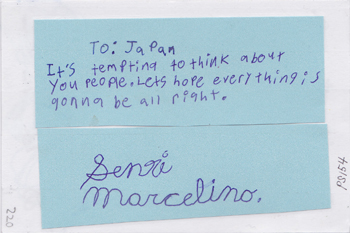 To: Japan
It's tempting to think about
you people. Lets hope everything is
gonna be all right.
Senri
Marcelino.
220
PS,54